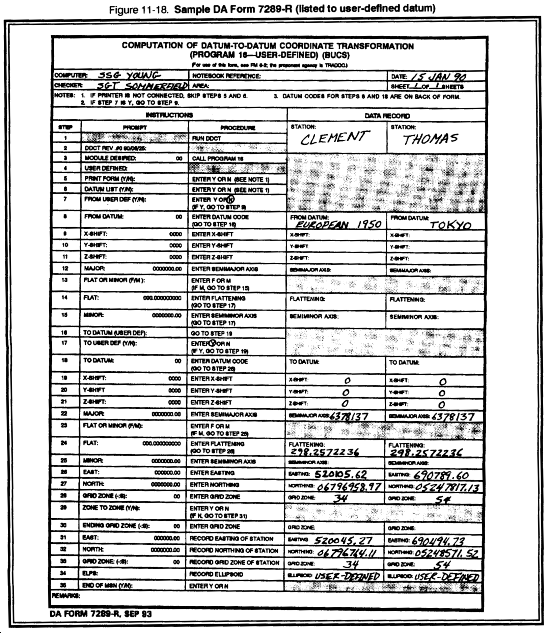 Figure 11-18. Sample DA Form 7289-R (listed to user-defined datum)
COMPUTATION OF DATUM-TO-DATUM COORDINATE TRANSFORMATION
(PROGRAM 16—USER-DEFINED) (BUCS)
(For use of this form, see FM 6-2; the proponent agency is TRADOC.)
COMPUTER: SSG YOUNG NOTEBOOK REFERENCE: DATE: 15 JAN 90
CHECKER: SGT SOMMERFIELD AREA: SHEET 1 OF 1 SHEETS
NOTES: 1. IF PRINTER IS NOT CONNECTED, SKIP STEPS 5 AND 6. 3. DATUM CODES FOR STEPS 8 AND 18 ARE ON BACK OF FORM.
2. IF STEP 7 IS Y, GO TO STEP 9.
INSTRUCTIONS DATA RECORD
STEP PROMPT PROCEDURE STATION: CLEMENT STATION: THOMAS
1 RUN DDCT
2 DDCT REV
3 MODULE DESIRED: 00 CALL PROGRAM 16
4 USER DEFINED
5 PRINT FORM (Y/N): ENTER Y OR N (SEE NOTE 1)
6 DATUM LIST (Y/N): ENTER Y OR N (SEE NOTE 1)
7 FROM USER DEF (Y/N): ENTER Y OR N
(IF Y, GO TO STEP 9)
8 FROM DATUM: 00 ENTER DATUM CODE FROM DATUM: EUROPEAN 1950 FROM DATUM: TOKYO
(GO TO STEP 16)
9 X-SHIFT: 0000 ENTER X-SHIFT X-SHIFT: X-SHIFT:
10 Y-SHIFT: 0000 ENTER Y-SHIFT Y-SHIFT: Y-SHIFT:
11 Z-SHIFT: 0000 ENTER Z-SHIFT Z-SHIFT: Z-SHIFT:
12 MAJOR: 0000000.00 ENTER SEMIMAJOR AXIS SEMIMAJOR AXIS: SEMIMAJOR AXIS:
13 FLAT OR MINOR (F/M): ENTER F OR M
(IF M, GO TO STEP 15)
14 FLAT: 000.000000000 ENTER FLATTENING FLATTENING: FLATTENING:
(GO TO STEP 17)
15 MINOR: 0000000.00 ENTER SEMIMINOR AXIS SEMIMINOR AXIS: SEMIMINOR AXIS:
(GO TO STEP 17)
16 TO DATUM (USER DEF): GO TO STEP 19
17 TO USER DEF (Y/N): ENTER Y OR N
(IF Y, GO TO STEP 19)
18 TO DATUM: 00 ENTER DATUM CODE TO DATUM: TO DATUM:
(GO TO STEP 26)
19 X-SHIFT: 0000 ENTER X-SHIFT X-SHIFT: 0 X-SHIFT: 0
20 Y-SHIFT: 0000 ENTER Y-SHIFT Y-SHIFT: 0 Y-SHIFT: 0
21 Z-SHIFT: 0000 ENTER Z-SHIFT Z-SHIFT: 0 Z-SHIFT: 0
22 MAJOR: 0000000.00 ENTER SEMIMAJOR AXIS SEMIMAJOR AXIS: 6378137 SEMIMAJOR AXIS: 6378137
23 FLAT OR MINOR (F/M): ENTER F OR M
(IF M, GO TO STEP 25)
24 FLAT: 000.000000000 ENTER FLATTENING FLATTENING: 298.2572236 FLATTENING: 298.2572236
(GO TO STEP 26)
25 MINOR: 0000000.00 ENTER SEMIMINOR AXIS SEMIMINOR AXIS: SEMIMINOR AXIS:
26 EAST: 000000.00 ENTER EASTING EASTING: 520105.62 EASTING: 690789.60
27 NORTH: 0000000.00 ENTER NORTHING NORTHING: 06796958.97 NORTHING: 05247817.13
28 GRID ZONE (-:S): 00 ENTER GRID ZONE GRID ZONE: 34 GRID ZONE: 54
29 ZONE TO ZONE (Y/N): ENTER Y OR N
(IF N, GO TO STEP 31)
30 ENDING GRID ZONE (-:S): 00 ENTER GRID ZONE GRID ZONE: GRID ZONE:
31 EAST: 000000.00 RECORD EASTING OF STATION EASTING: 520045.27 EASTING: 690494.73
32 NORTH: 0000000.00 RECORD NORTHING OF STATION NORTHING: 06796764.11 NORTHING: 05248571.52
33 GRID ZONE (-:S): 00 RECORD GRID ZONE OF STATION GRID ZONE: 34 GRID ZONE: 54
34 ELPS: RECORD ELLIPSOID ELLIPSOID: USER-DEFINED ELLIPSOID: USER-DEFINED
35 END OF MSN (Y/N): ENTER Y OR N
REMARKS:
DA FORM 7289-R, SEP 93